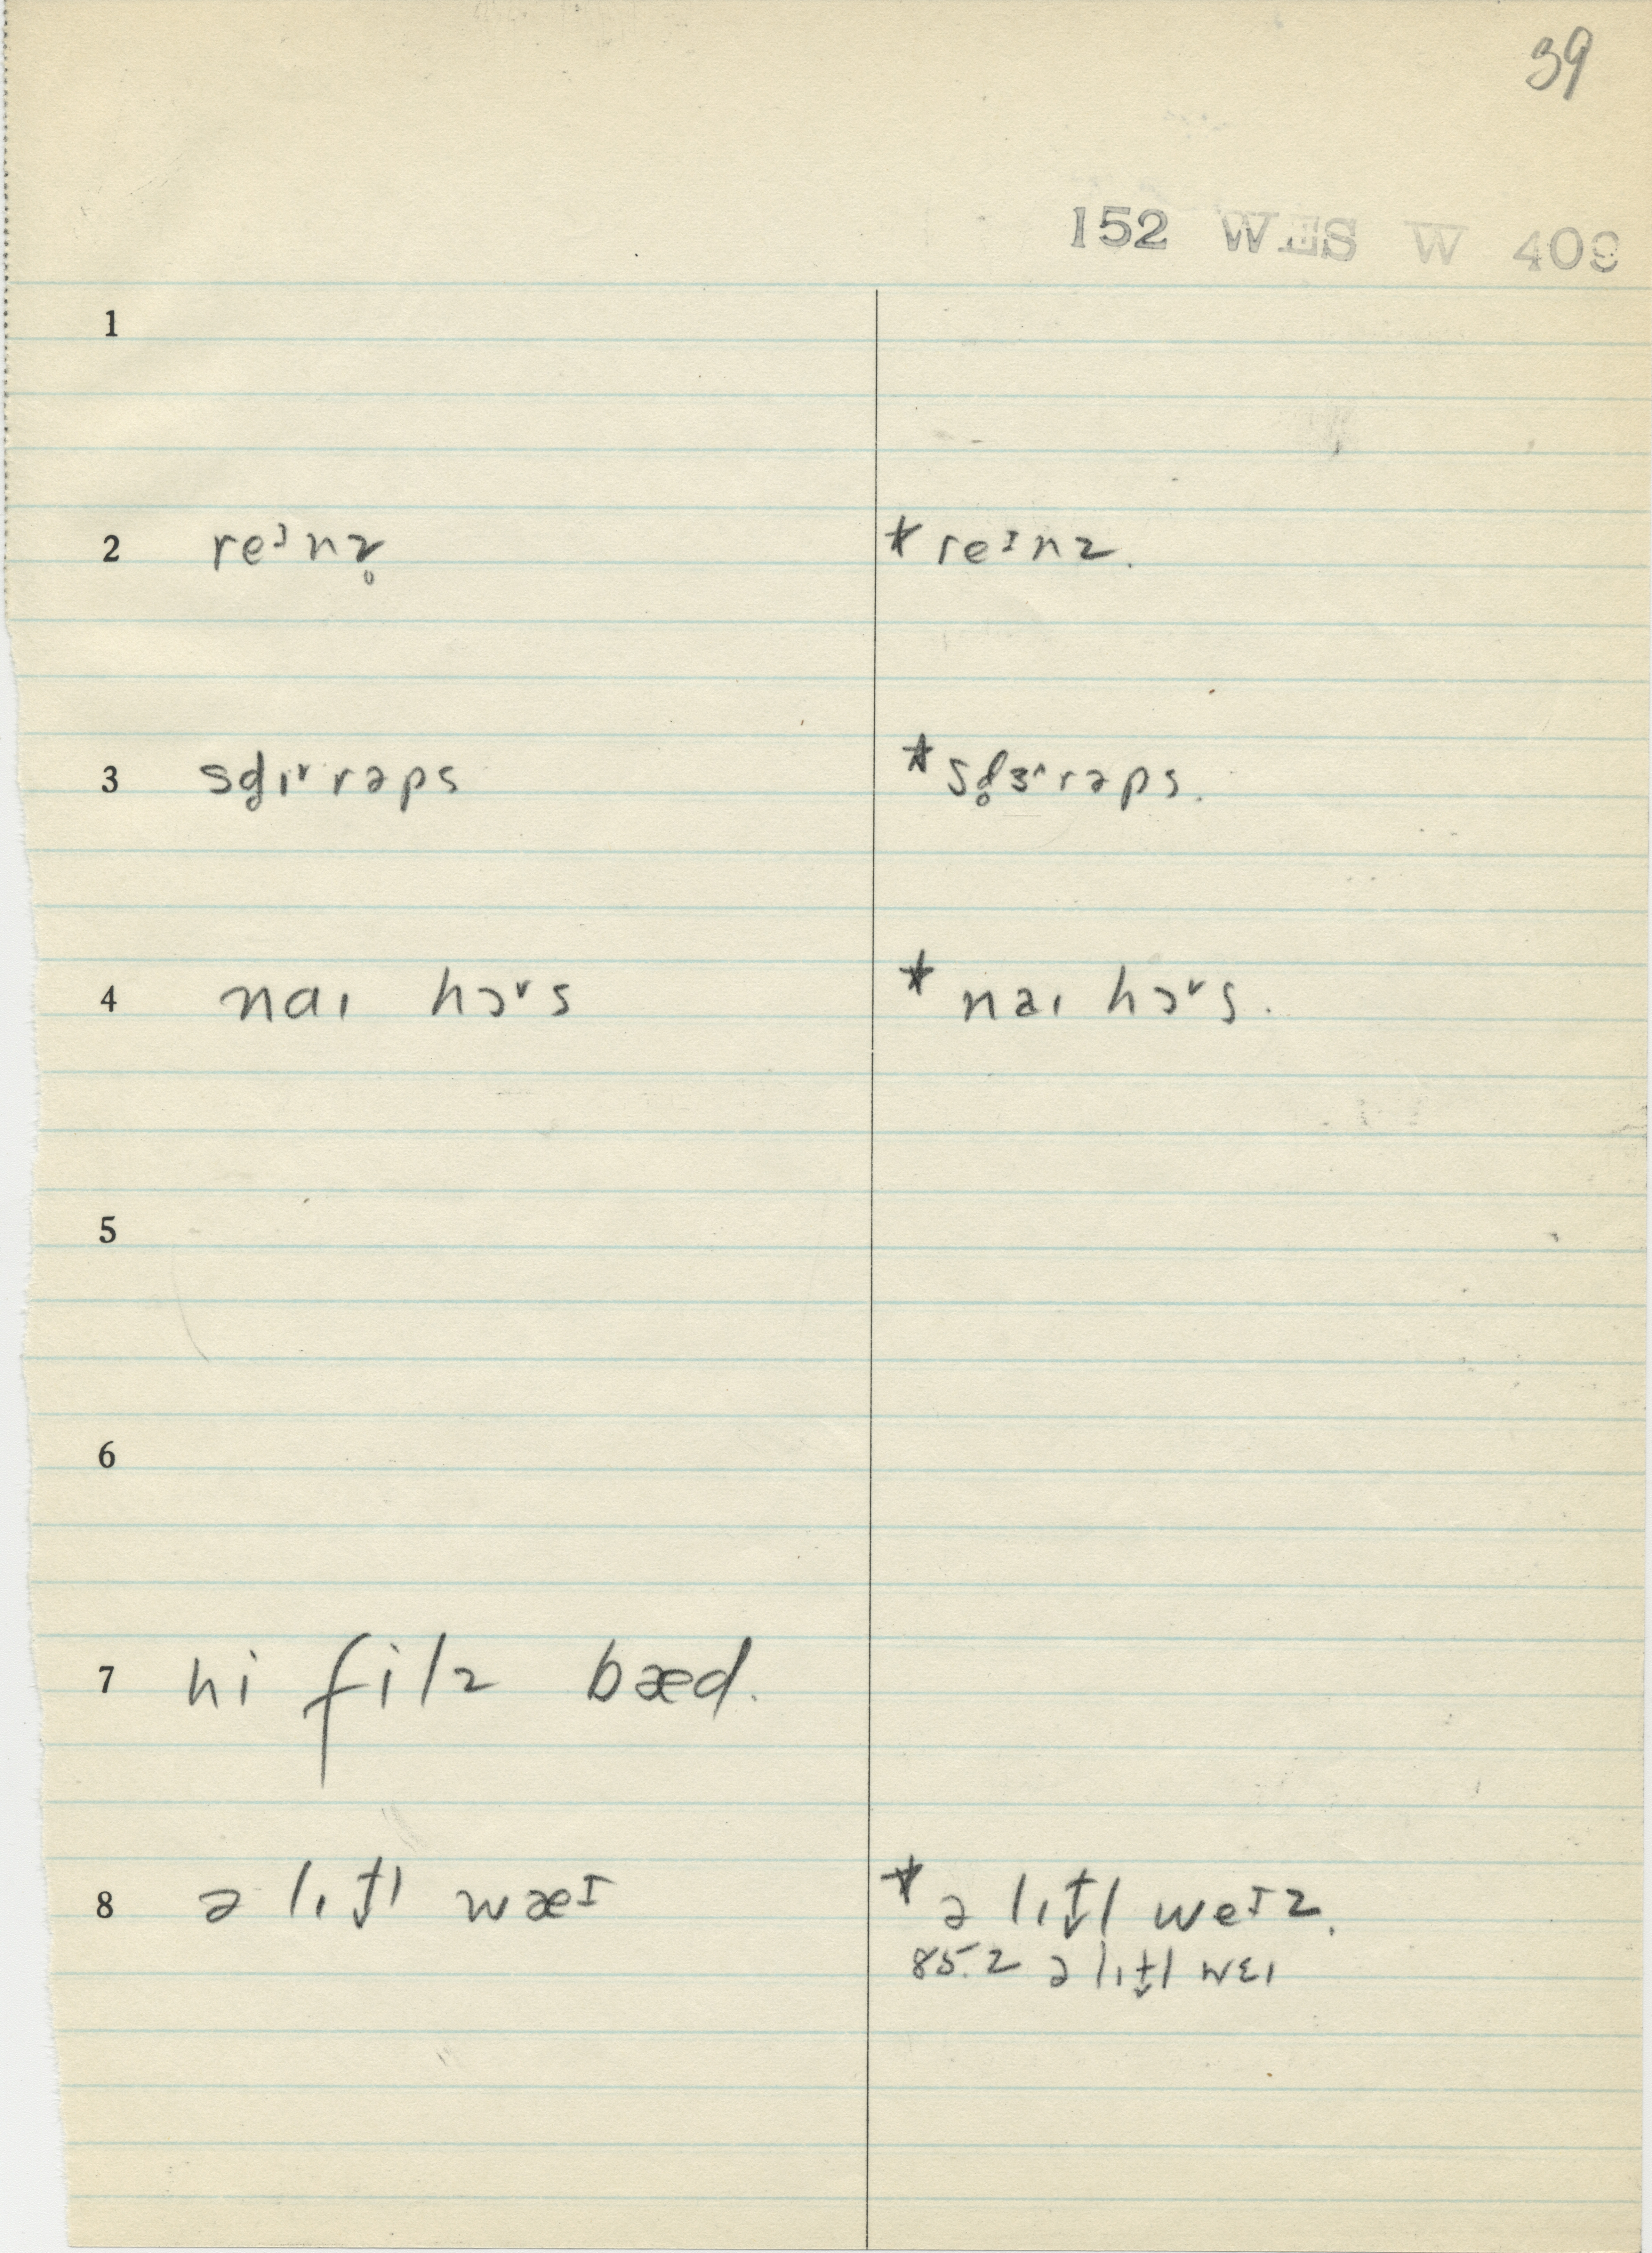 39
152 WES W 409
1
2 reᶦnz̥ * reᶦnz.
3 sd̥ɪɚrəps * sd̥ɝrəps.
4 naɪ hɔɚs * naɪ hɔɚs.
5
6
7 hi filz bæd.
8 ə lɪt̬l wæᶦ * ə lɪt̬l weᶦz.
85.2 ə lɪt̬l wɛɪ